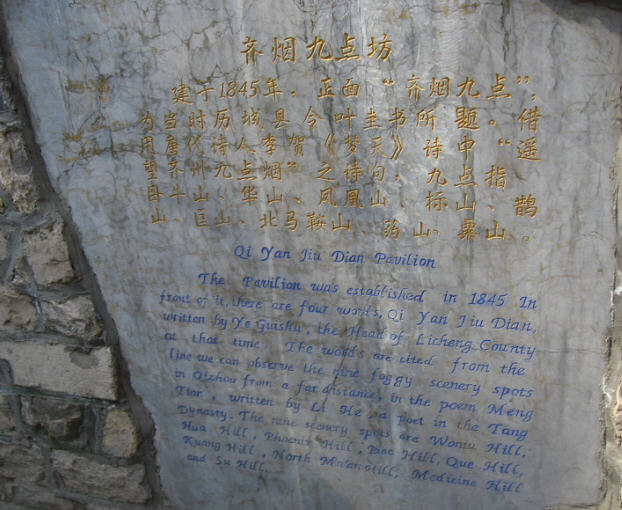 齐烟九点坊
建于1845年。正面“齐烟九点”,
为当时历城县令叶圭书所题。借
用唐代诗人李贺《梦天》诗中“遥
望齐州九点烟”之诗句。九点指
卧牛山、华山、凤凰山、标山、鹊
山、匡山、北马鞍山、药山、粟山、。
Qi Yan Jiu Dian Pavilion
The Pavilion was established in 1845 In
front of it, there are four words, Qi Yan Jiu Dian,
written by Ye Guishu, the Head of Licheng County
at that time. The words are cited from the
line we can observe the nine foggy scenery spots
in Qizhou from a far distance, in the poem Meng
Tian, written by Li He, a poet in the Tang
Dynasty. The nine scenery spots are Woniu Hill,
Hua Hill, Phoenix Hill, Biao Hill, Que Hill,
Kuang Hill, North Ma'an Hill, Medicine Hill
and Su Hill.